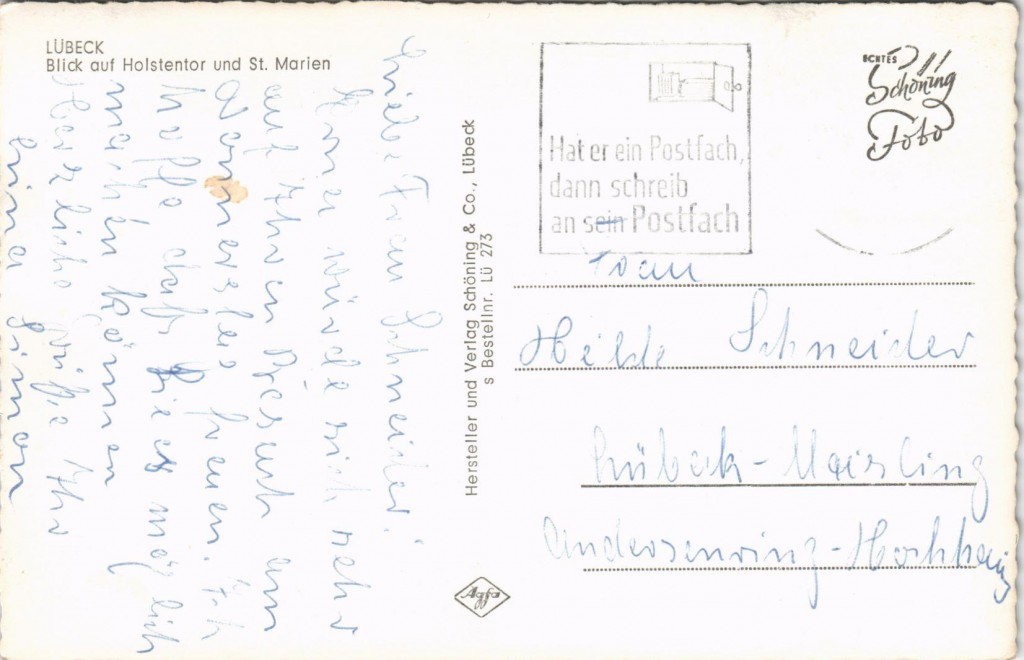 LÜBECK
Blick auf Holstentor und St. Marien
Liebe Frau Schneider!
würde mich sehr
auf Ihren Besuch am
Donnerstag freuen. Ich
hoffe daß Sie es möglich
machen können
Herzliche Grüße Ihr
Hersteller und Verlag Schöning & Co., Lübeck
s Bestellnr. Lü 273
Agfa
Hat er ein Postfach,
dann schreib
an sein Postfach
ECHTES
Schöning
Foto
Frau
Hilde Schneider
Lübeck-Moisling
Andersenring-Hochhaus